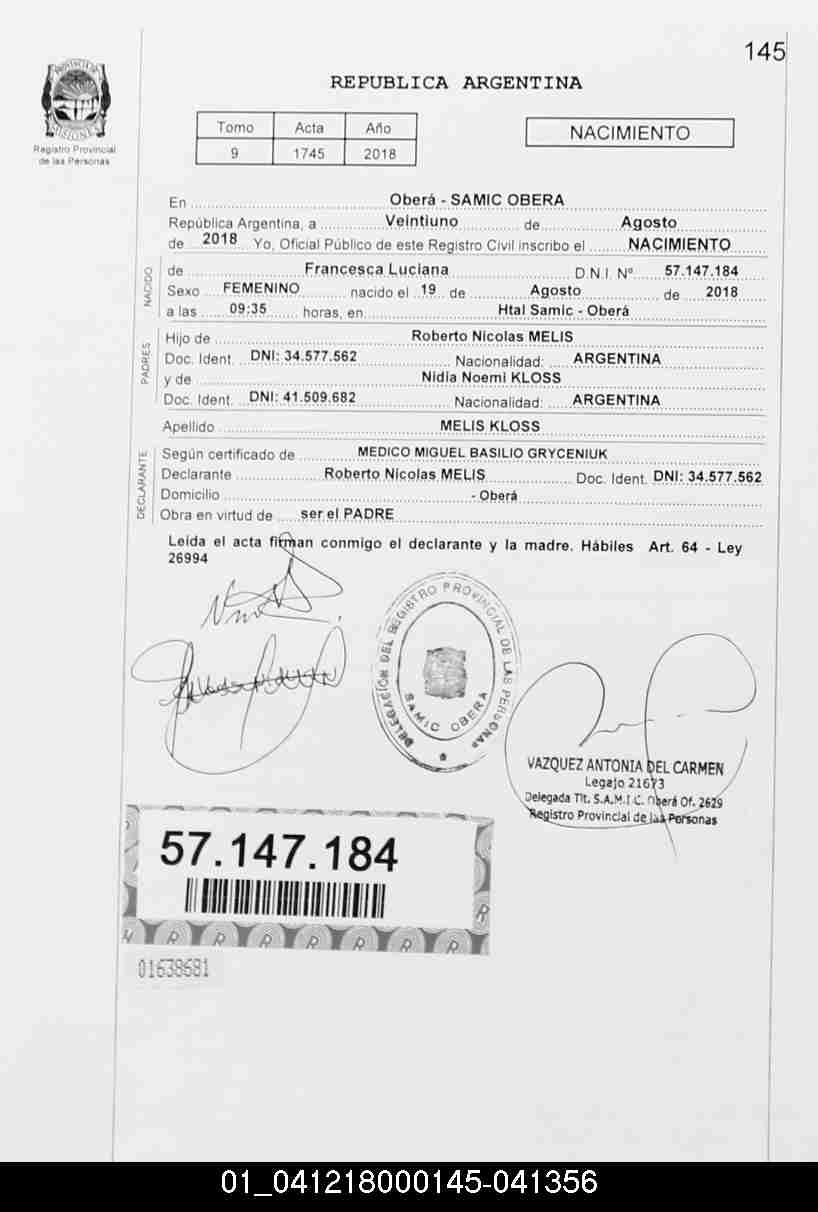 145
PROVINCIA DE
MISIONES
Registro Provincial
de las Personas
REPUBLICA ARGENTINA
Tomo Acta Año
9 1745 2018
NACIMIENTO
En Oberá - SAMIC OBERA
República Argentina, a Veintiuno de Agosto
de 2018 Yo, Oficial Público de este Registro Civil inscribo el NACIMIENTO
NACIDO
de Francesca Luciana D.N.I. Nº 57.147.184
Sexo FEMENINO nacido el 19 de Agosto de 2018
a las 09:35 horas, en Htal Samic - Oberá
PADRES
Hijo de Roberto Nicolas MELIS
Doc. Ident. DNI: 34.577.562 Nacionalidad: ARGENTINA
y de Nidia Noemi KLOSS
Doc. Ident. DNI: 41.509.682 Nacionalidad: ARGENTINA
Apellido MELIS KLOSS
DECLARANTE
Según certificado de MEDICO MIGUEL BASILIO GRYCENIUK
Declarante Roberto Nicolas MELIS Doc. Ident. DNI: 34.577.562
Domicilio - Oberá
Obra en virtud de ser el PADRE
Leída el acta firman conmigo el declarante y la madre. Hábiles Art. 64 - Ley
26994
DELEGACIÓN DEL REGISTRO PROVINCIAL DE LAS PERSONAS
SAMIC OBERA
VAZQUEZ ANTONIA DEL CARMEN
Legajo 21673
Delegada Tit. S.A.M.I.C. Oberá Of. 2629
Registro Provincial de las Personas
57.147.184
R R R R R R R R
01638681
01_041218000145-041356